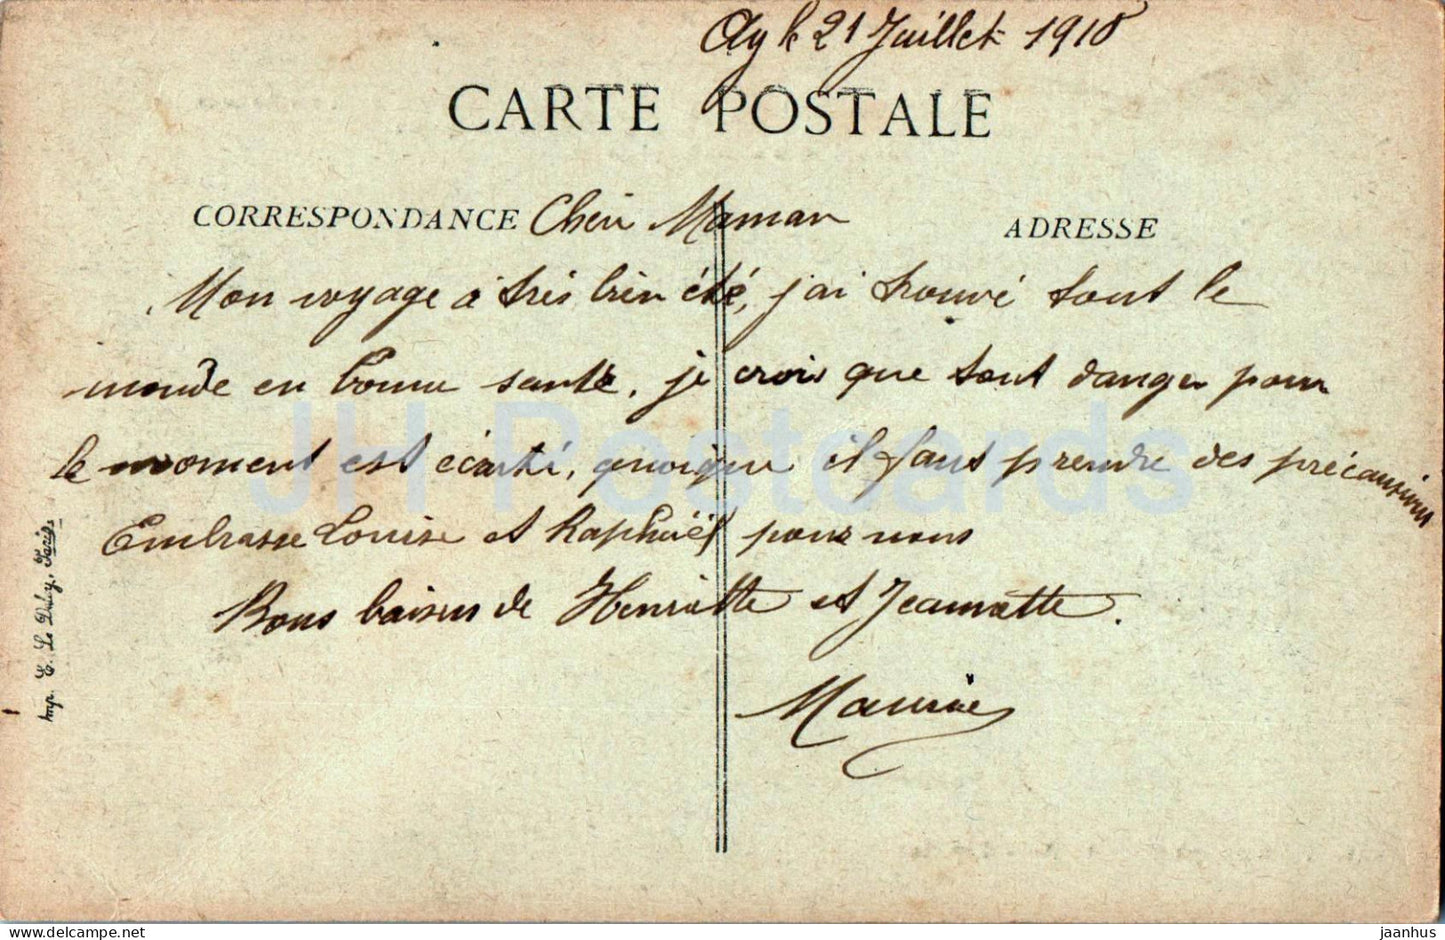 Ay le 21 Juillet 1918
CARTE POSTALE
CORRESPONDANCE Chère Maman
ADRESSE
Mon voyage à très bien été, j'ai trouvé tout le
monde en bonne santé. je crois que tout danger pour
le moment est écarté, quoique il faut prendre des précautions
Embrasse Louise et Raphaël pour nous
Bons baisers de Henriette et Jeannette.
Maurice
Imp. E. Le Deley, Paris
JH Postcards
delcampe.net
jaanhus